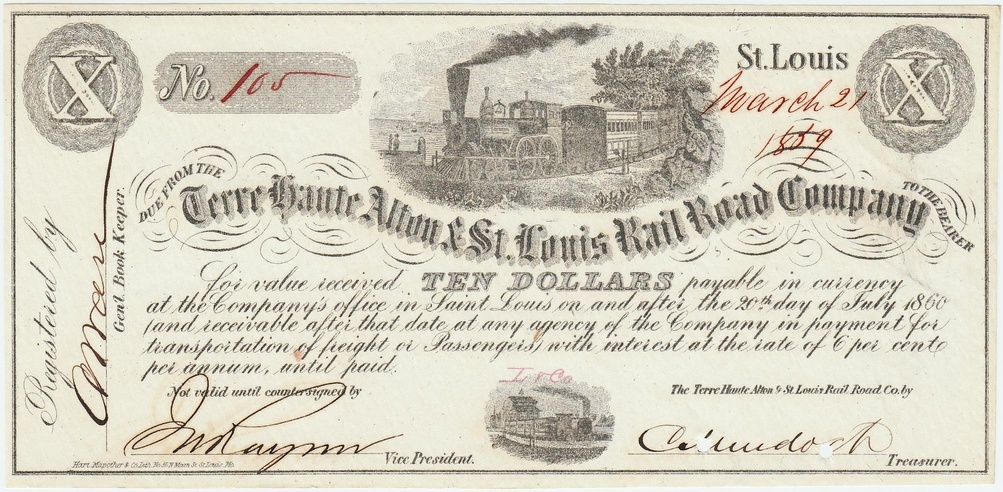 X
No. 105
St. Louis
March 21
1859
X
DUE FROM THE
Terre Haute Alton & St. Louis Rail Road Company
TO THE BEARER
for value received TEN DOLLARS payable in currency
at the Company's office in Saint Louis on and after the 20th day of July 1860
(and receivable after that date at any agency of the Company in payment for
transportation of freight or Passengers) with interest at the rate of 6 per cent
per annum, until paid.
Registered by
Genl. Book Keeper.
Not valid until countersigned by
The Terre Haute Alton & St. Louis Rail Road Co. by
Vice President.
Treasurer.
Hart, Mapother & Co. Lith. No. 30 N Main St. St. Louis, Mo.